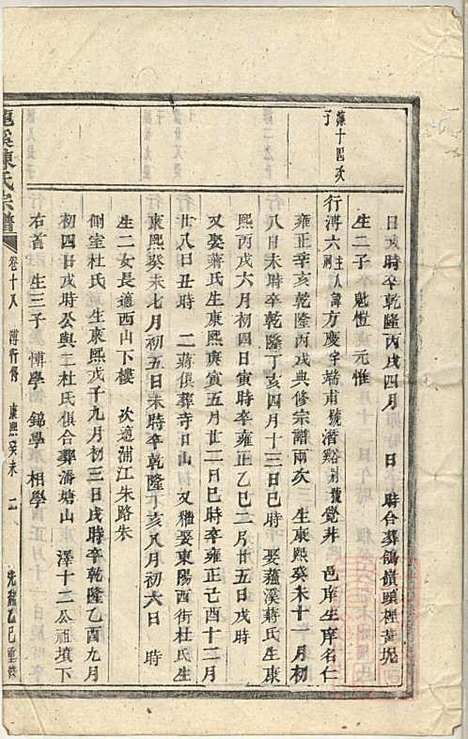 溥十四次子
日戌時卒乾隆丙戌四月 日 時合葬鴿嶺頭裡黃坭
生二子 魁愷 元惟
行溥六 主人諱方慶字端甫號潛谿别號覺非 邑庠生庠名仁
雍正辛亥乾隆丙戌典修宗譜兩次 生康熙癸未十一月初
八日未時卒乾隆丁亥四月十三日巳時 娶蘊溪蔣氏生康
熙丙戌六月初四日寅時卒雍正乙巳二月廿五日戌時
又娶蔣氏生康熙庚寅五月廿二日巳時卒雍正己酉十二月
廿八日丑時 二蔣俱葬寺口山 又繼娶東陽西街杜氏生
康熙癸未七月初五日未時卒乾隆丁亥八月初六日 時
生二女長適西山下樓 次適浦江朱路朱
側室杜氏 生康熙戊子九月初三日戌時卒乾隆乙酉九月
初四日戌時公與二杜氏俱合葬潘塘山 澤十二公祖墳下
右首 生三子 博學 錦學 相學
溪陳氏宗譜 卷十八 溥行傳 康熙癸未 二 光緒乙巳重修